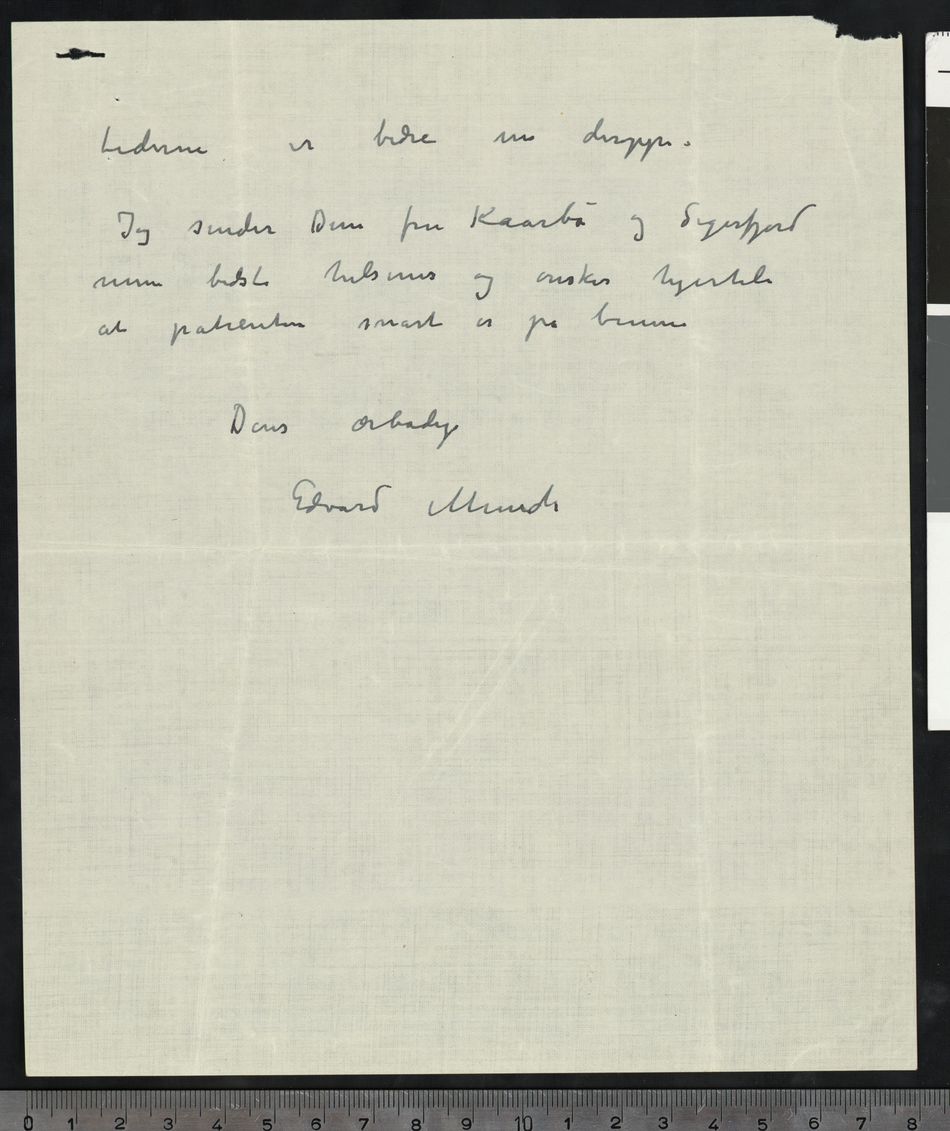 tiderne er bedre nu deroppe.
Jeg sender Dem fru Kaarbø og Sigerfjord
mine bedste hilsener og ønsker hjertelig
at patienten snart er på benene
Deres ærbødige
Edvard Munch
0 1 2 3 4 5 6 7 8 9 10 1 2 3 4 5 6 7 8